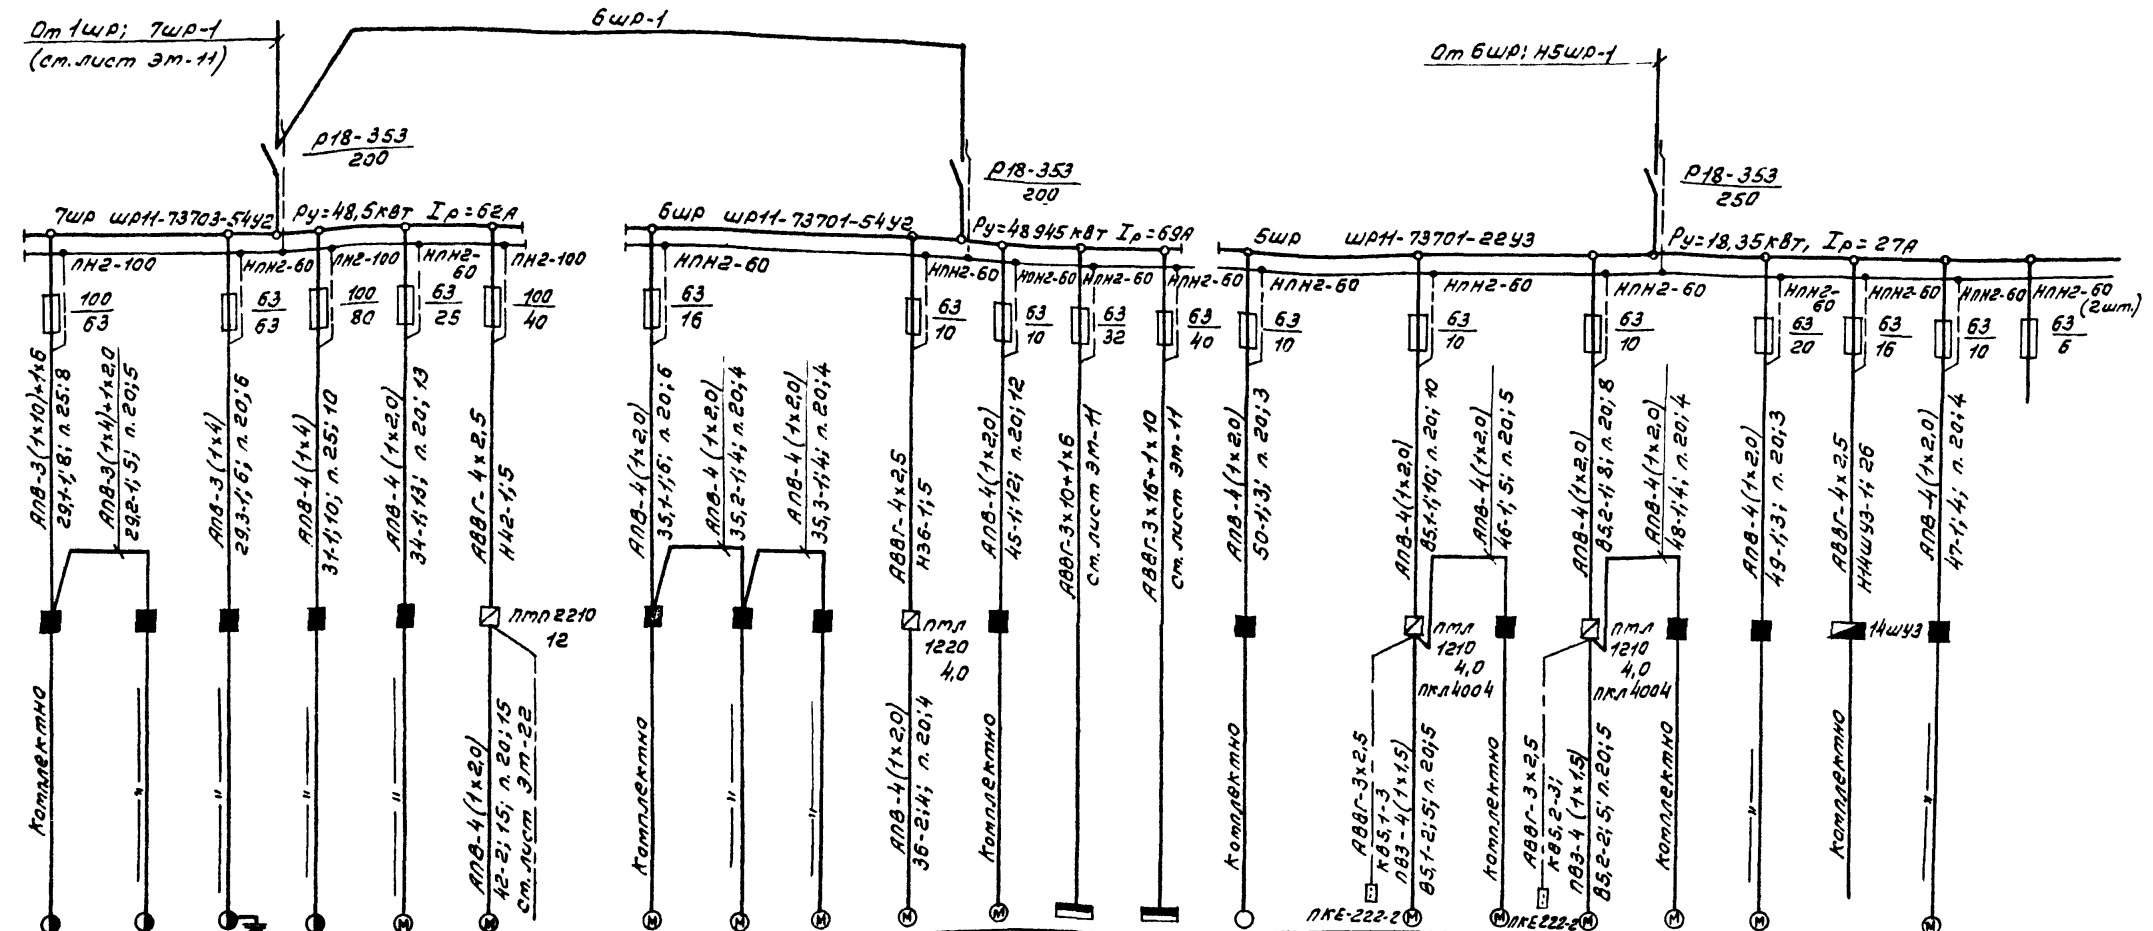 От 1шр; 7шр-1
(см. лист ЭМ-11)
6шр-1
От 6шр; Н5шр-1
Р18-353
200
Р18-353
200
Р18-353
250
7шр шр11-73703-54у2 Ру=48,5квт Iр=62А
6шр шр11-73701-54у2 Ру=48945квт Iр=69А
5шр шр11-73701-22у3 Ру=18,35квт, Iр=27А
ПН2-100
НПН2-60
ПН2-100
НПН2-
60
ПН2-100
НПН2-60
НПН2-60
НПН2-60
НПН2-60
НПН2-60
НПН2-60
НПН2-60
НПН2-60
НПН2-
60
НПН2-60
НПН2-60
НПН2-60
(2шт.)
100
63
63
63
100
80
63
25
100
40
63
16
63
10
63
10
63
32
63
40
63
10
63
10
63
10
63
20
63
16
63
10
63
6
АПВ-3(1х10)+1х6
29,1-1; 8; п. 25; 8
АПВ-3(1х4)+1х2,0
29,2-1; 5; п. 20; 5
АПВ-3(1х4)
29,3-1; 6; п. 20; 6
АПВ-4(1х4)
31-1; 10; п. 25; 10
АПВ-4(1х2,0)
34-1; 13; п. 20; 13
АВВГ-4х2,5
Н42-1; 5
АПВ-4(1х2,0)
35,1-1; 6; п. 20; 6
АПВ-4(1х2,0)
35,2-1; 4; п. 20; 4
АПВ-4(1х2,0)
35,3-1; 4; п. 20; 4
АВВГ-4х2,5
Н36-1; 5
АПВ-4(1х2,0)
45-1; 12; п. 20; 12
АВВГ-3х10+1х6
см. лист ЭМ-11
АВВГ-3х16+1х10
см. лист ЭМ-11
АПВ-4(1х2,0)
50-1; 3; п. 20; 3
АПВ-4(1х2,0)
В5,1-1; 10; п. 20; 10
АПВ-4(1х2,0)
46-1; 5; п. 20; 5
АПВ-4(1х2,0)
В5,2-1; 8; п. 20; 8
АПВ-4(1х2,0)
48-1; 4; п. 20; 4
АПВ-4(1х2,0)
49-1; 3; п. 20; 3
АВВГ-4х2,5
Н14шуз-1; 26
АПВ-4(1х2,0)
47-1; 4; п. 20; 4
ПМЛ 2210
12
ПМЛ
1220
4,0
ПМЛ
1210
4,0
ПКЛ4004
ПМЛ
1210
4,0
ПКЛ4004
14шуз
Комплектно
—"—
—"—
—"—
—"—
АПВ-4(1х2,0)
42-2; 15; п. 20; 15
см. лист ЭМ-22
Комплектно
—"—
—"—
АПВ-4(1х2,0)
36-2; 4; п. 20; 4
Комплектно
Комплектно
АВВГ-3х2,5
кВ5,1-3
ПВ3-4(1х1,5)
В5,1-2; 5; п. 20; 5
Комплектно
АВВГ-3х2,5
кВ5,2-3;
ПВ3-4(1х1,5)
В5,2-2; 5; п. 20; 5
Комплектно
—"—
Комплектно
—"—
ПКЕ-222-2
ПКЕ222-2
М
М
М
М
М
М
М
М
М
М
М
М
М